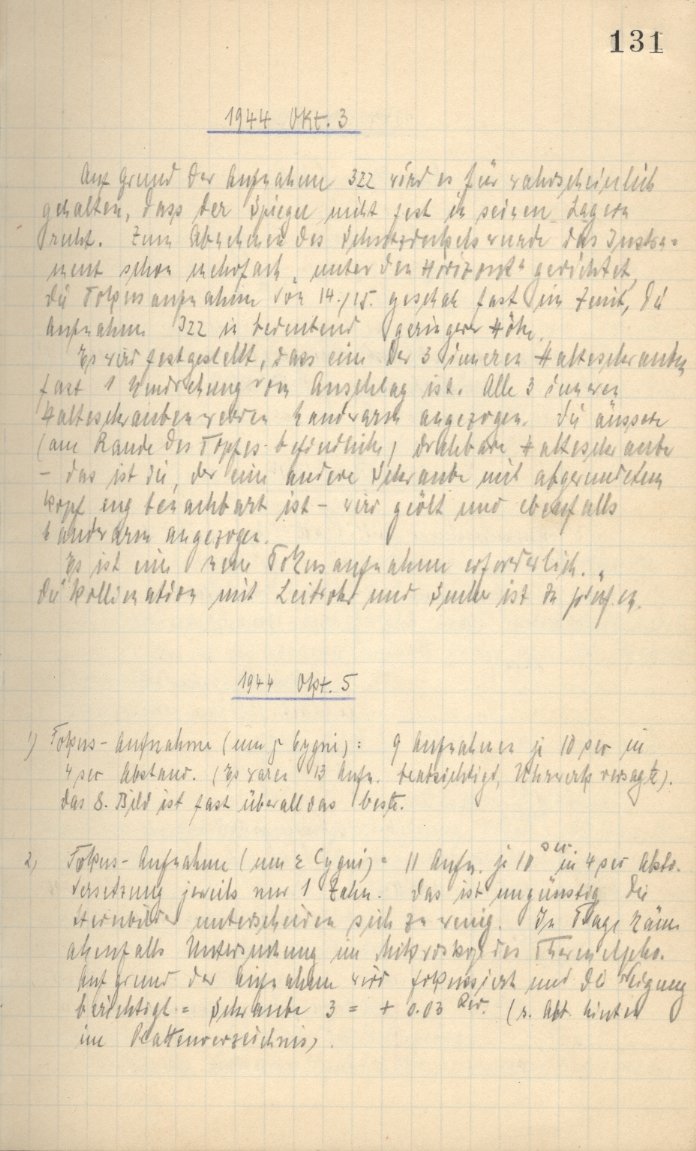 131
1944 Okt. 3
Auf Grund der Aufnahme 322 wird es für wahrscheinlich
gehalten, dass der Spiegel nicht fest in seinen Lagern
ruht. Zum Abnehmen des Schutzdeckels wurde das Instru=
ment schon mehrfach „unter den Horizont“ gerichtet,
die Fokusaufnahme von 14./15. geschah fast im Zenit, die
Aufnahme 322 in bedeutend geringerer Höhe.
Es wird festgestellt, dass eine der 3 inneren Halteschrauben
fast 1 Umdrehung vom Anschlag ist. Alle 3 inneren
Halteschrauben werden handwarm angezogen. Die äussere
(am Rande des Topfes befindliche) drehbare Halteschraube
– das ist die, der eine andere Schraube mit abgerundetem
Kopf eng benachbart ist – wird geölt und ebenfalls
handwarm angezogen.
Es ist eine neue Fokusaufnahme erforderlich.
Die Kollimation mit Leitrohr und Sucher ist zu prüfen.
1944 Okt. 5
1) Fokus-Aufnahme (um γ Cygni): 9 Aufnahmen je 10 sec in
4 sec Abstand. (Es waren 13 Aufn. beabsichtigt, Uhrwerk versagte).
Das 8. Bild ist fast überall das beste.
2) Fokus-Aufnahme (um ε Cygni) = 11 Aufn. je 10 sec in 4 sec Abst.
Versetzung jeweils nur 1 Zahn. Das ist ungünstig die
Sternbilder unterscheiden sich zu wenig. In Frage käme
allenfalls Untersuchung im Mikroskop des
Auf Grund der Aufnahme wird fokussiert und die Neigung
berichtigt = Schraube 3 = + 0.03 Rev. (s. Abt. hinten
im Plattenverzeichnis).